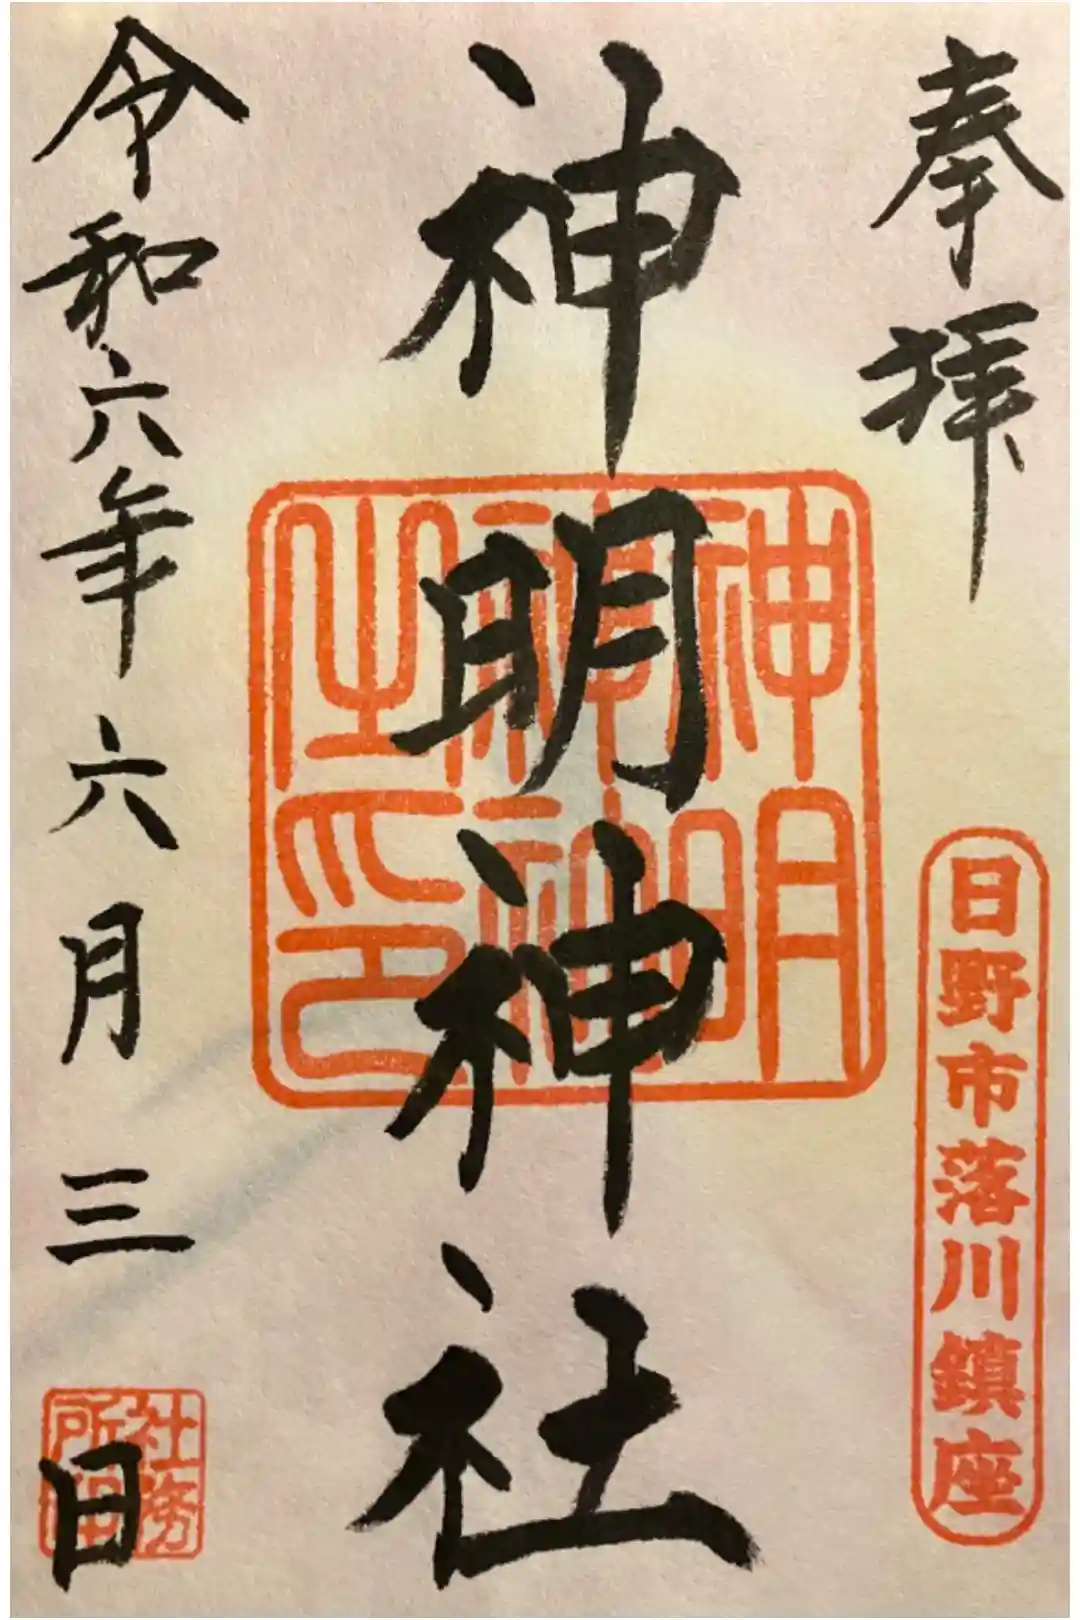 奉拝
日野市落川鎮座
神明神社
神明
之印
令和六年六月三日
社務
所印